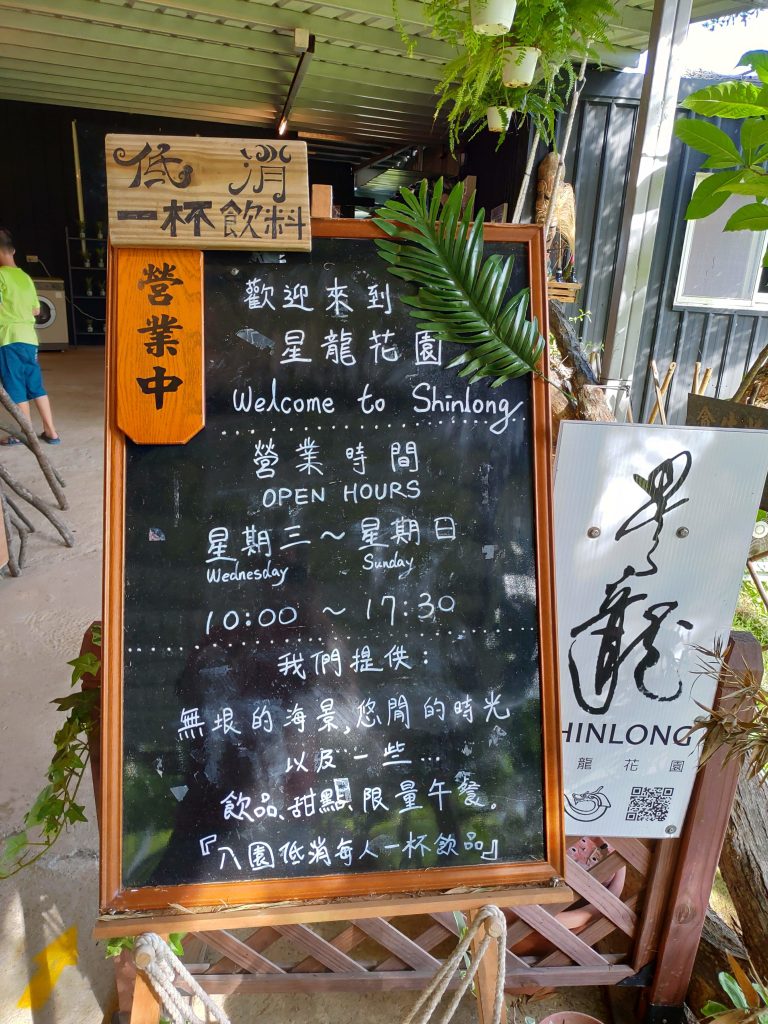 低消
一杯飲料
營業中
歡迎來到
星龍花園
Welcome to Shinlong
營業時間
OPEN HOURS
星期三～星期日
Wednesday Sunday
10:00 ～ 17:30
我們提供：
無垠的海景,悠閒的時光
以及一些…
飲品、甜點、限量午餐。
『入園低消每人一杯飲品』
星龍
HINLONG
龍花園